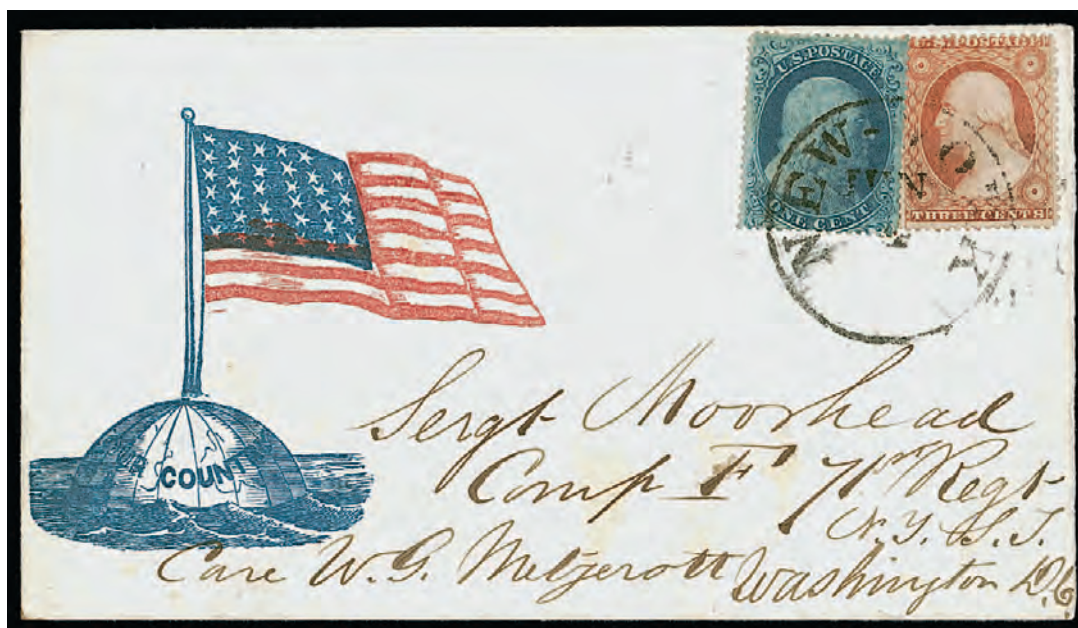 U.S. POSTAGE
ONE CENT
U.S. POSTAGE
THREE CENTS
NEW-YORK
JUN
COUN
Sergt Moorhead
Comp F 71st Regt
N.Y.S.
Care W.G. Metzerott Washington D.C.